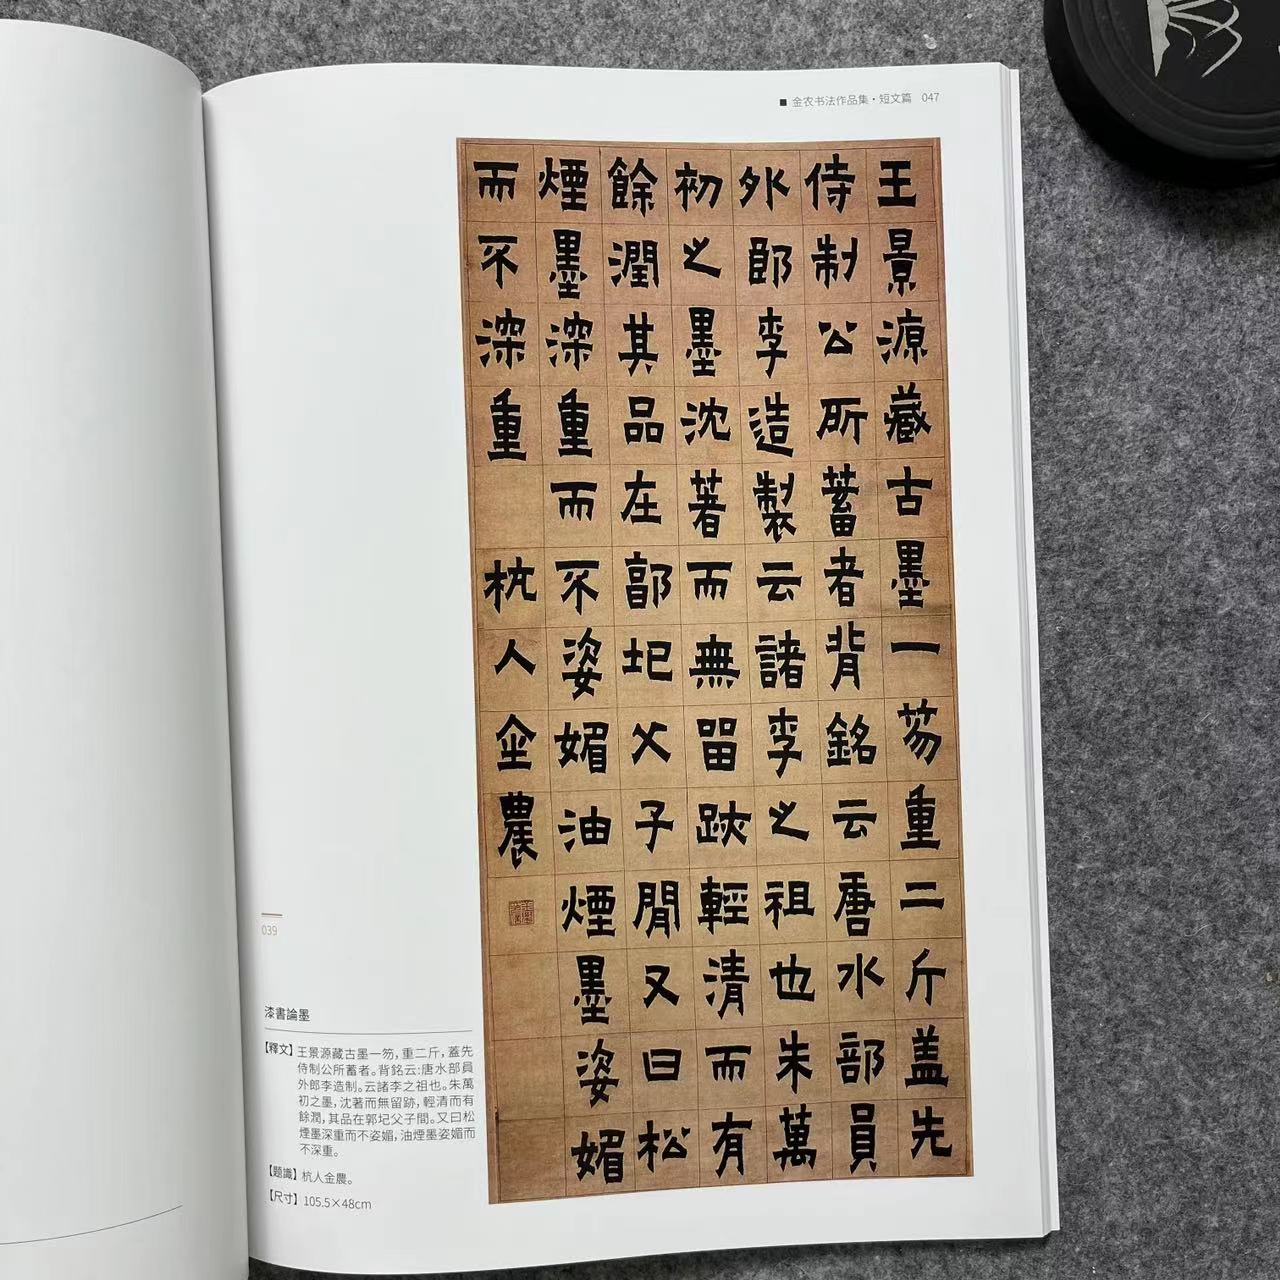 ■ 金农书法作品集·短文篇 047
王景源藏古墨一笏重二斤盖先
侍制公所蓄者背銘云唐水部員
外郎李造製云諸李之祖也朱萬
初之墨沈著而無留跡輕清而有
餘潤其品在郭圯父子間又曰松
煙墨深重而不姿媚油煙墨姿媚
而不深重 杭人金農
039
漆書論墨
【釋文】王景源藏古墨一笏，重二斤，蓋先
侍制公所蓄者。背銘云：唐水部員
外郎李造制。云諸李之祖也。朱萬
初之墨，沈著而無留跡，輕清而有
餘潤，其品在郭圯父子間。又曰松
煙墨深重而不姿媚，油煙墨姿媚而
不深重。
【題識】杭人金農。
【尺寸】105.5×48cm